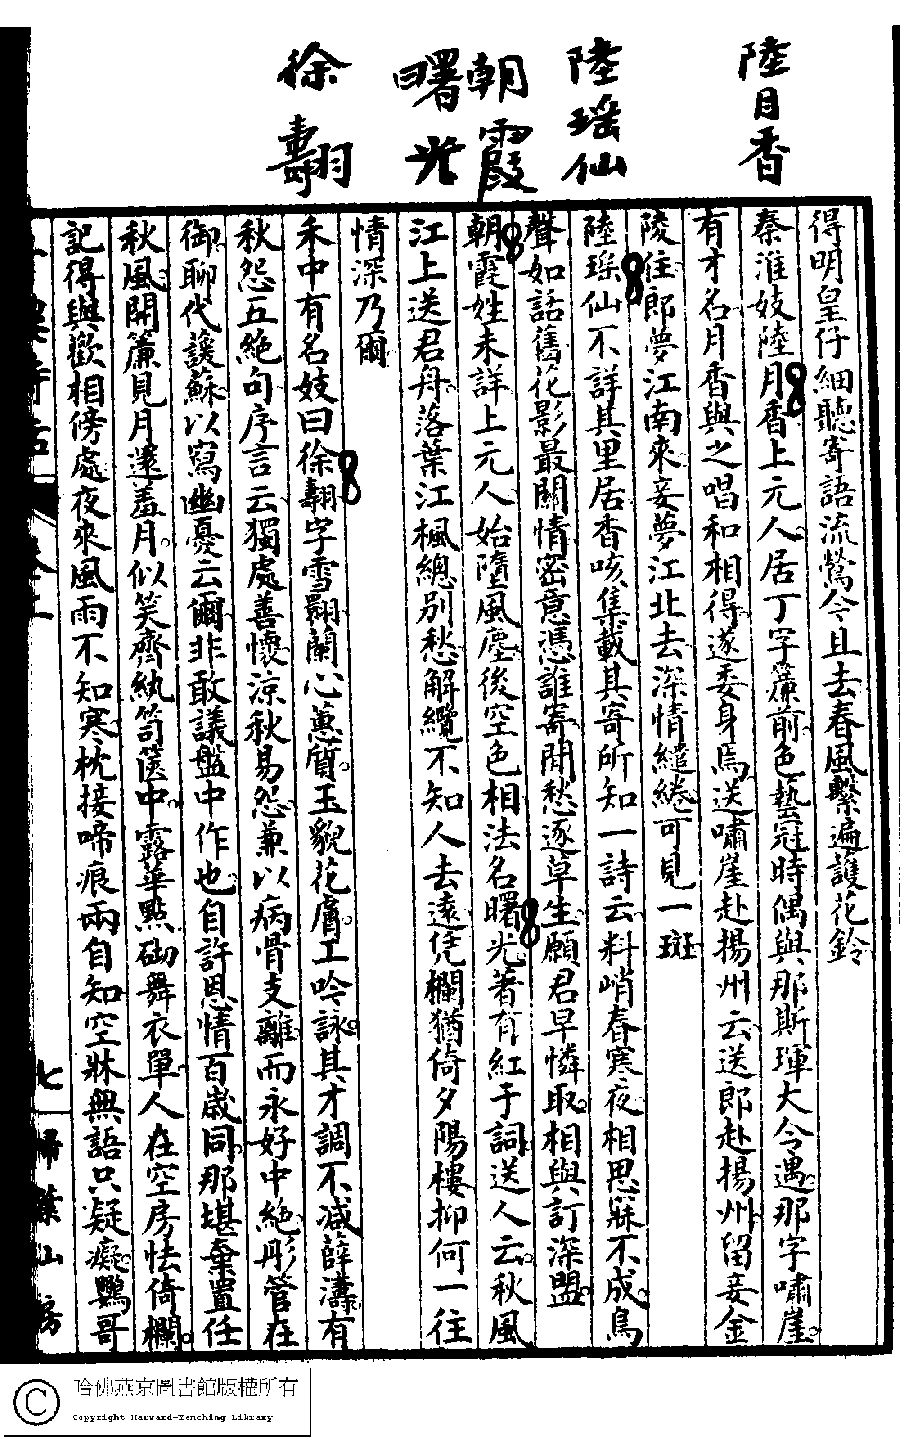 陸月香
陸瑤仙
朝霞
曙光
徐翿
得明皇仔細聽寄語流鶯今且去春風繫遍護花鈴
秦淮妓陸月香上元人居丁字簾前色藝冠時偶與那斯琿大令遇那字嘯崖
有才名月香與之唱和相得遂委身焉送嘯崖赴揚州云送郎赴揚州留妾金
陵住郎夢江南來妾夢江北去深情繾綣可見一斑
陸瑤仙不詳其里居香咳集載其寄所知一詩云料峭春寒夜相思寐不成鳥
聲如話舊花影最關情密意憑誰寄閒愁逐草生願君早憐取相與訂深盟
朝霞姓未詳上元人始墮風塵後空色相法名曙光著有紅于詞送人云秋風
江上送君舟落葉江楓總別愁解纜不知人去遠凭欄猶倚夕陽樓抑何一往
情深乃爾
禾中有名妓曰徐翿字雪翿蘭心蕙質玉貌花膚工吟詠其才調不减薛濤有
秋怨五絶句序言云獨處善懷涼秋易怨兼以病骨支離而永好中絶彤管在
御聊代諼蘇以寫幽憂云爾非敢議盤中作也自許恩情百歲同那堪棄置任
秋風開簾見月還羞月似笑齊紈笥篋中露華點砌舞衣單人在空房怯倚欄
記得與歡相傍處夜來風雨不知寒枕接啼痕兩自知空牀無語只疑癡鸚哥
七
掃葉山房
哈佛燕京圖書館版權所有
Copyright Harvard-Yenching Library